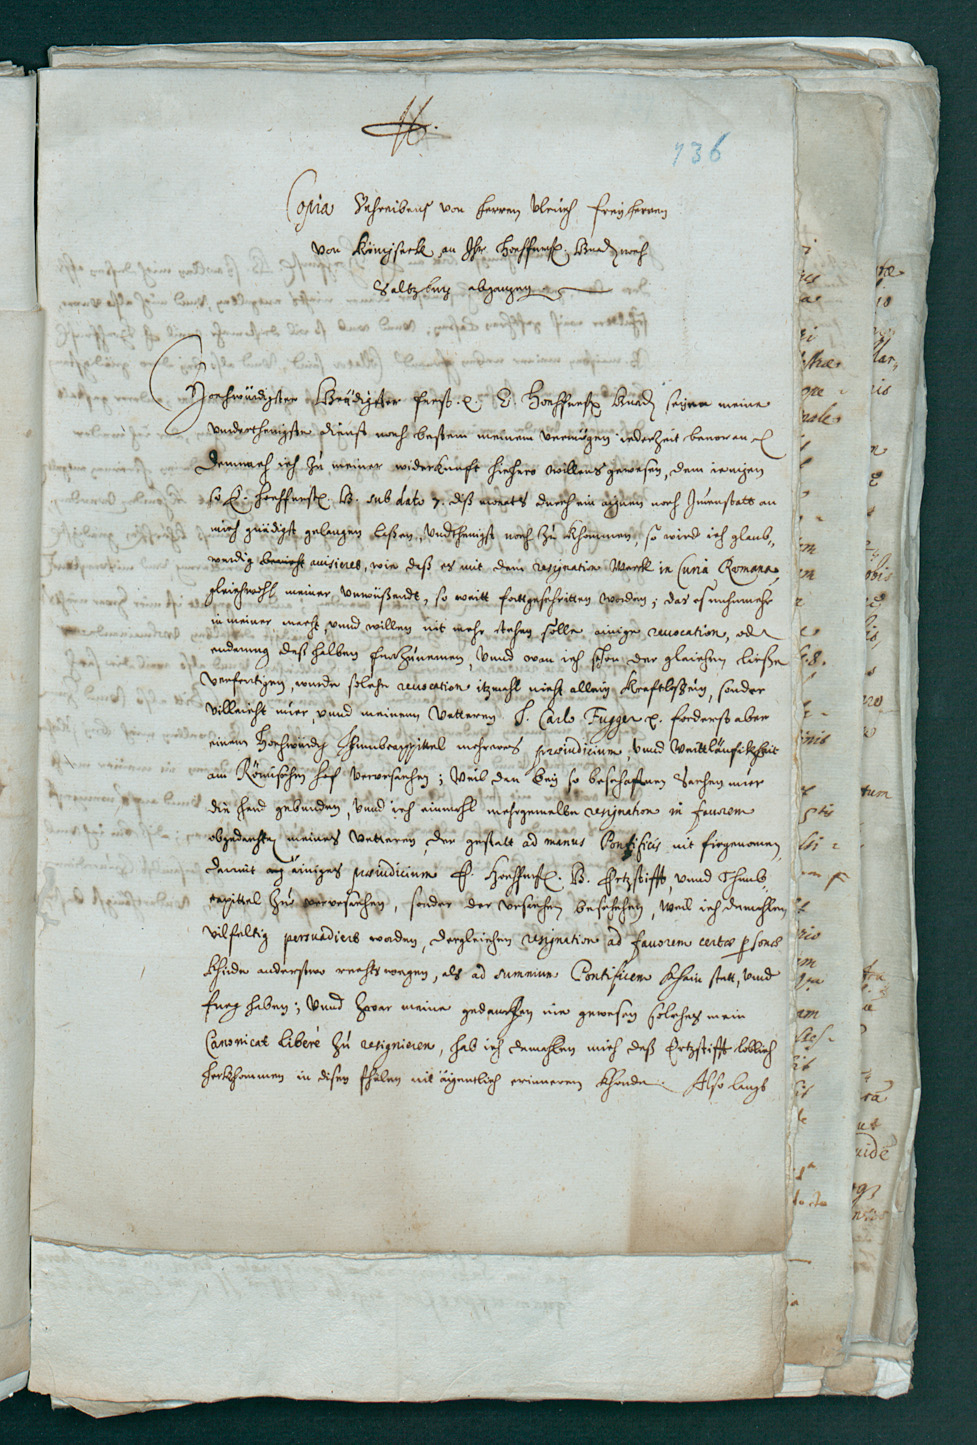 736
Copia Schreibens von herren Ulrich freyherren
von Königseck an Ihr Hochfürstl: Gnad: nach
Saltzburg abgangen
Hochwürdigster Gnädigster Fürst. x. E Hochfürstl Gnad: seyen meine
underthenigste dienst nach bestem meinem vermögen iederzeit bevoran
Demnach ich zu meiner widerkunft hiehero willens gewesen, dem ienigen
so E: Hochfürstl. G. sub dato 7. diß monats durch ein aignen nach Immenstatt an
mich gnädigst gelangen laßen, underthenigst nach zu khommen, so wird ich glaub,,
würdig avisiert, wie daß es mit dem resignation Werckh in Curia Romana
gleichwohl meiner unwüßendt, so weitt fortgeschritten worden; das es nunmehr
in meiner macht, unnd willen nit mehr stehen solle ainige revocation, oder
enderung deßhalben fürzunemen, unnd wan ich schon der gleichen ließe
verfertigen, wurde solche revocation itzmahl nicht allein kraftloß sein, sonder
villeicht mier unnd meinem Vetteren H. Carlo Fugger x. forderst aber
einem Hochwürdig Thumbcappittel mehrers præiudicium, unnd Weittläufikheit
am Römischen hof verursachen; Weil dan bey so beschafnen sachen mier
die hend gebunden, unnd ich einmahl mehrgemelte resignation in favorem
obgedachten meines Vetteren, der gestalt ad manus Pontificis nit firgenomen,
damit ainiges præiudicium E. Hochfürstl. G. Ertzstifft, unnd Thumb,,
capittel zu verursachen, sonder der ursachen beschehen, weil ich damahlen
vilfeltig persuadiert worden, dergleichen resignation ad favorem certæ personæ
khinde anderstwo rechtswegen, als ad summum Pontificem khein statt, unnd
fueg haben; unnd zwar meine gedanckhen nie gewesen solches mein
Canonicat liberè zu resignieren, hab ich damahlen mich deß Ertzstiffts loblich
herkhommen in disen fählen nit aigentlich erinneren khönde. Also langt